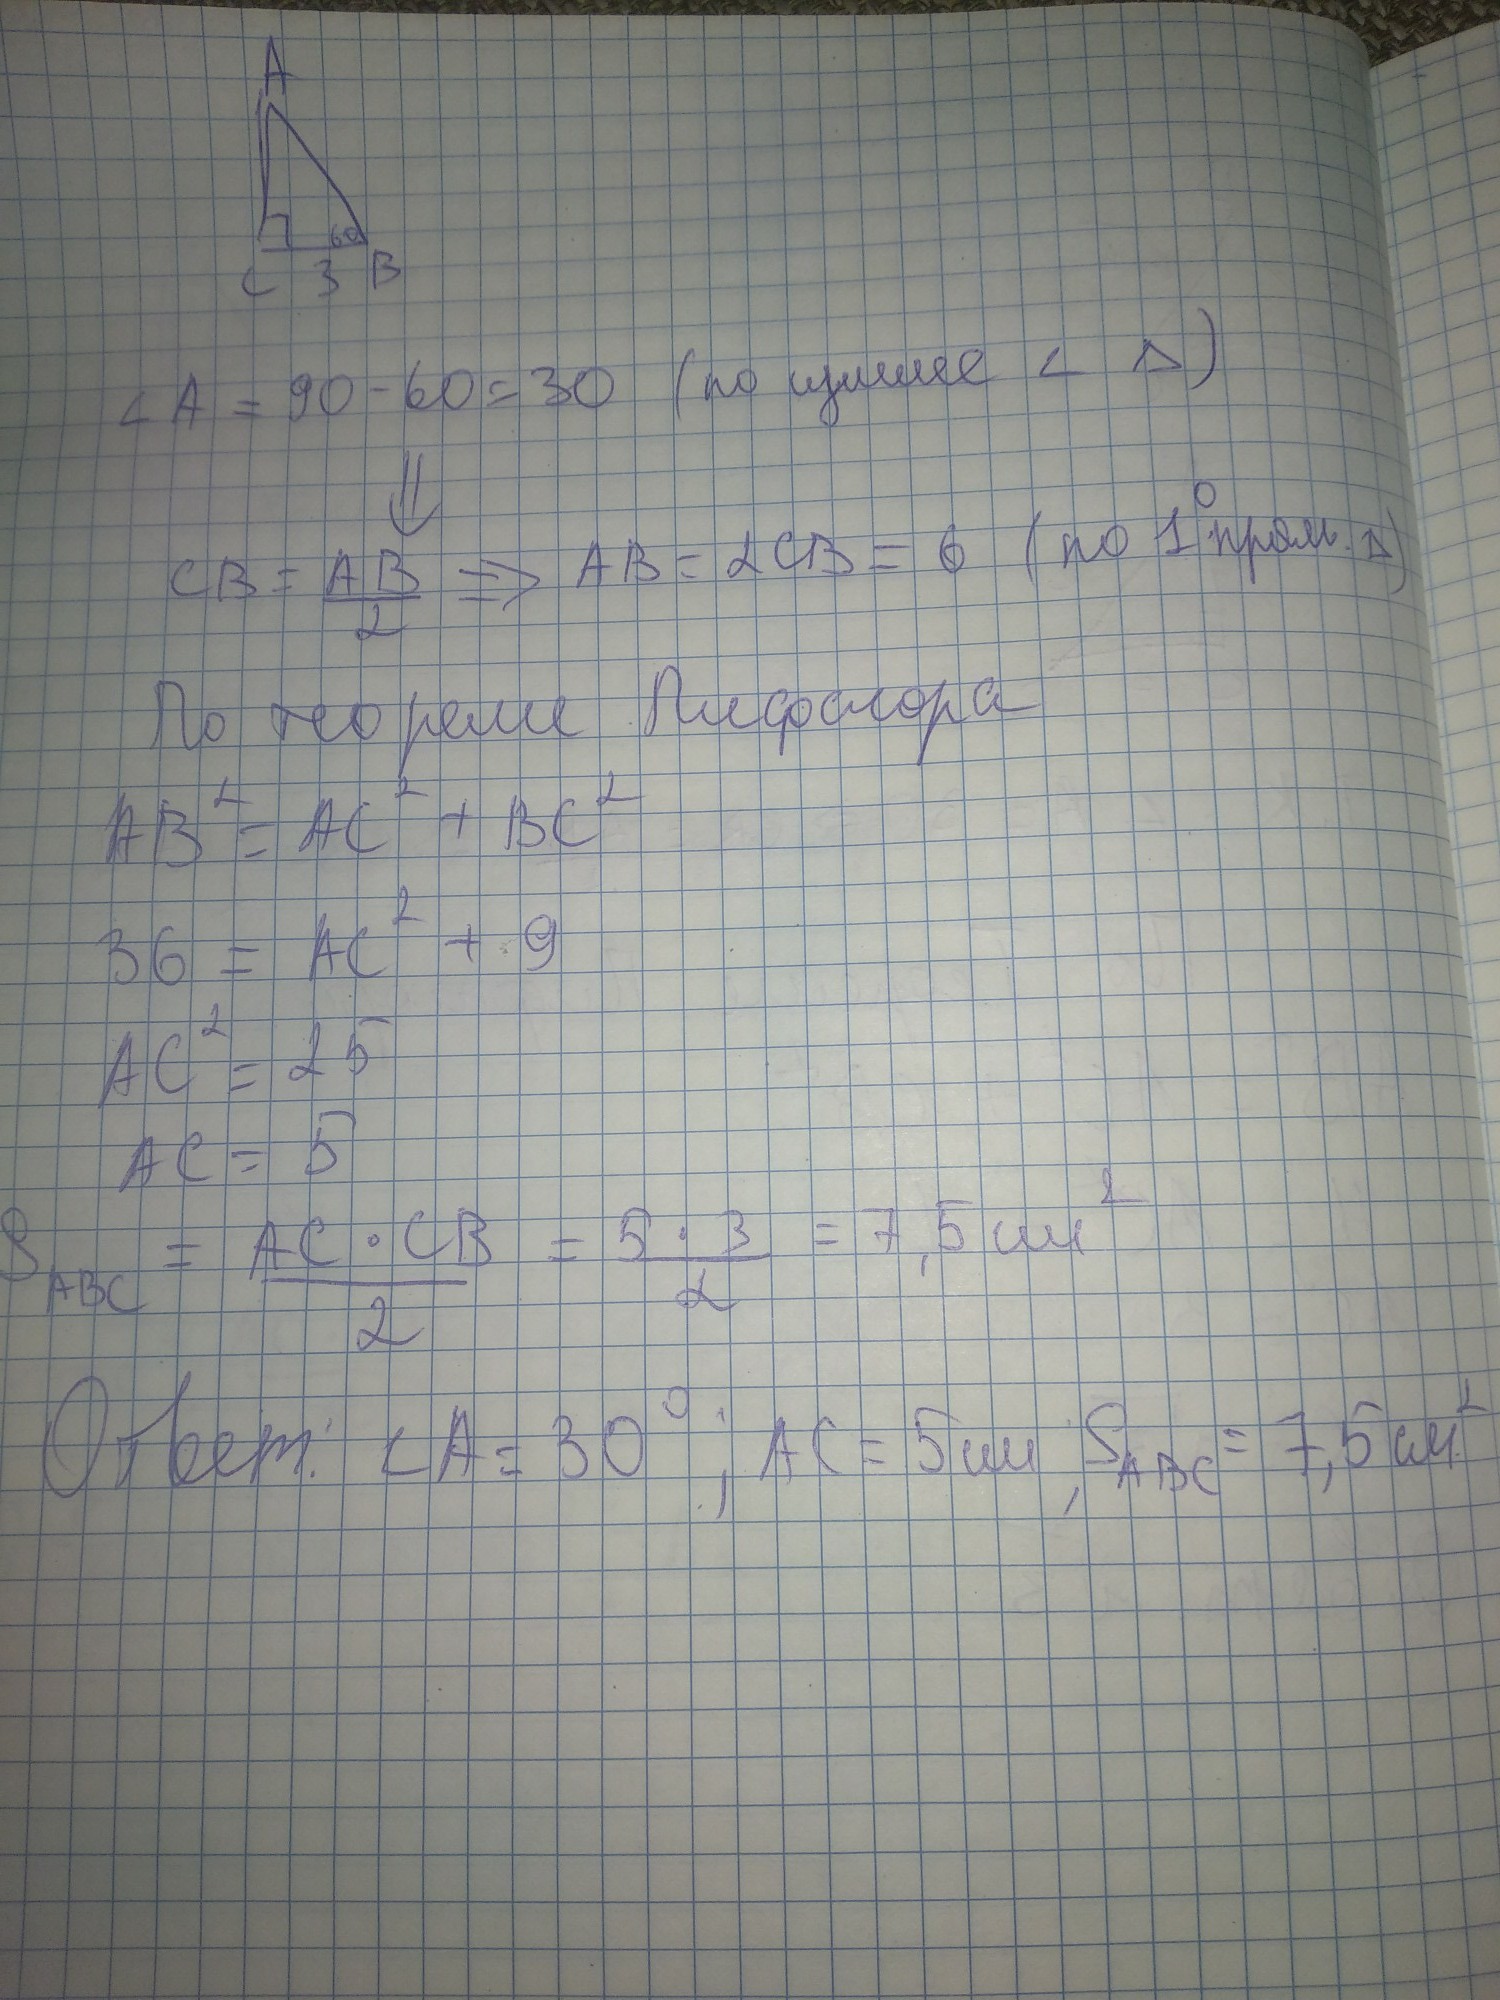 A
60
C 3 B
∠A = 90 - 60 = 30 (по сумме ∠ Δ)
⇓
CB = AB/2 ⇒ AB = 2CB = 6 (по 1° прям. Δ)
По теореме Пифагора
AB² = AC² + BC²
36 = AC² + 9
AC² = 25
AC = 5
S ABC = AC · CB/2 = 5 · 3/2 = 7,5 см²
Ответ: ∠A = 30°; AC = 5 см; S ABC = 7,5 см²